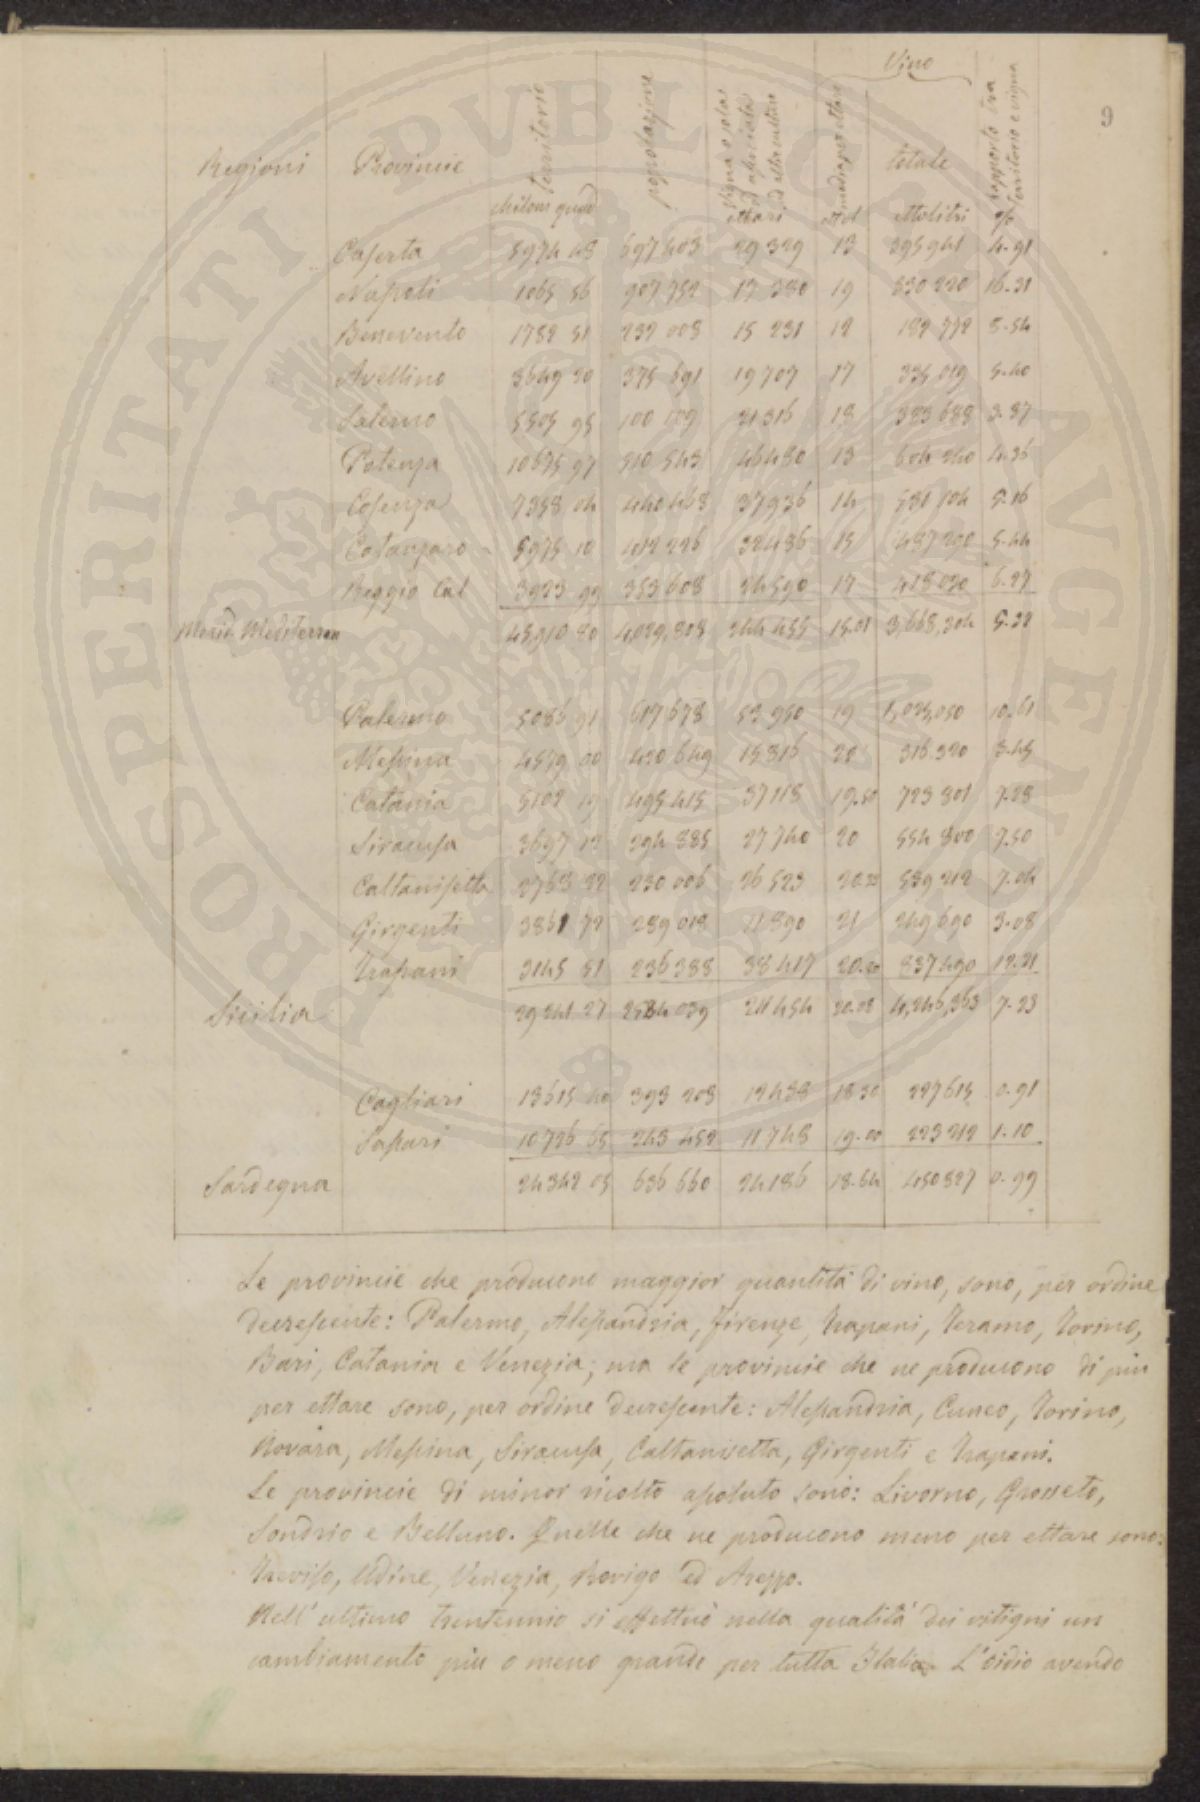 PROSPERITATI PVBLICAE AVGENDAE
9
Vino
Regioni Provincie territorio popolazione vigna sola od associata ad altre culture media per ettare totale rapporto tra territorio e vigna
chilom quad ettari ettol ettolitri %
Caserta 5974 48 697403 29329 12 395941 4.91
Napoli 1065 56 907752 17380 19 330220 16.31
Benevento 1782 51 232008 15231 12 182772 8.54
Avellino 3649 20 375691 19707 17 335019 5.40
Salerno 5505 95 21316 18 383688 3.87
Potenza 10675 97 510543 46480 13 604240 4.36
Cosenza 7358 04 440468 37936 14 531104 5.16
Catanzaro 5975 10 412226 32486 15 487290 5.44
Reggio Cal 3923 99 353608 24590 17 418030 6.27
Merid. Mediterran 45910 80 4,029,808 244455 15.01 3,668,304 5.32
Palermo 5086 91 617678 53950 19 1,025,050 10.61
Messina 4579 00 420649 15816 20 316320 3.45
Catania 5102 19 495415 37118 19.50 723801 7.28
Siracusa 3697 12 294885 27740 20 554800 7.50
Caltanisetta 2768 22 230006 26523 20.33 539212 7.04
Girgenti 3861 72 289018 11890 21 249690 3.08
Trapani 3145 51 236388 38417 21.80 837490 12.21
Sicilia 29241 27 2584039 211454 20.08 4,246,363 7.23
Cagliari 13615 40 393208 12438 18.30 227615 0.91
Sassari 10726 65 243452 11748 19.00 223212 1.10
Sardegna 24342 05 636660 24186 18.64 450827 0.99
Le provincie che producono maggior quantità di vino, sono, per ordine
decrescente: Palermo, Alessandria, Firenze, Trapani, Teramo, Torino,
Bari, Catania e Venezia; ma le provincie che ne producono di più
per ettare sono, per ordine decrescente: Alessandria, Cuneo, Torino,
Novara, Messina, Siracusa, Caltanisetta, Girgenti e Trapani.
Le provincie di minor ricolto assoluto sono: Livorno, Grosseto,
Sondrio e Belluno. Quelle che ne producono meno per ettare sono:
Treviso, Udine, Venezia, Rovigo ed Arezzo.
Nell'ultimo trentennio si effettuò nella qualità dei vitigni un
cambiamento più o meno grande per tutta Italia. L'oidio avendo